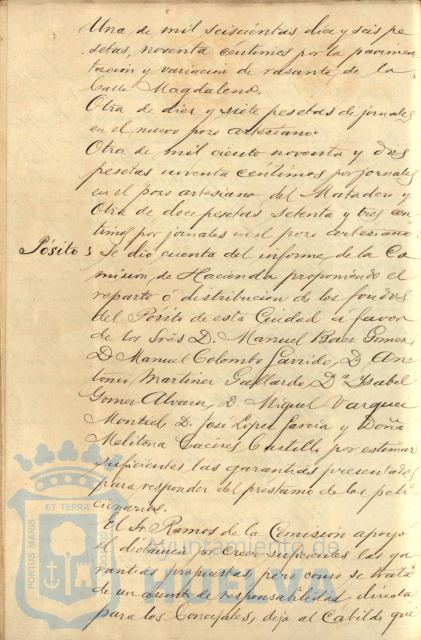 Una de mil seiscientas diez y seis pe
setas, noventa centimos por la pavimen
tacion y variacion de rasante de la
Calle Magdalena.
Otra de diez y siete pesetas de jornales
en el nuevo pozo artesiano.
Otra de mil ciento noventa y dos
pesetas noventa centimos por jornales
en el pozo artesiano del Matadero y
Otra de doce pesetas setenta y tres cen
timos por jornales en el pozo artesiano
Pósito Se dio cuenta del informe de la Co
mision de Hacienda proponiendo el
reparto ó distribucion de los fondos
del Pósito de esta Ciudad á favor
de los Srés D. Manuel Baez Gomez
D Manuel Colombo Garrido, D An
tonio Martinez Gallardo, Dª Isabel
Gomez Alvarez, D. Miguel Vazquez
Montiel D. Jose Lopez Garcia y Doña
Melitona Caceres Castillo por estimar
suficientes las garantias presentadas
para responder del prestamo de los peti
cionarios.
El Sr. Ramos de la Comision apoyo
el dictamen por creer suficientes las ga
rantias propuestas, pero como se trata
de un asunto de responsabilidad directa
para los Concejales, deja al Cabildo que
PORTUS MARIS
ET TERRAE
CUSTODIA
Ayuntamiento de
HUELVA